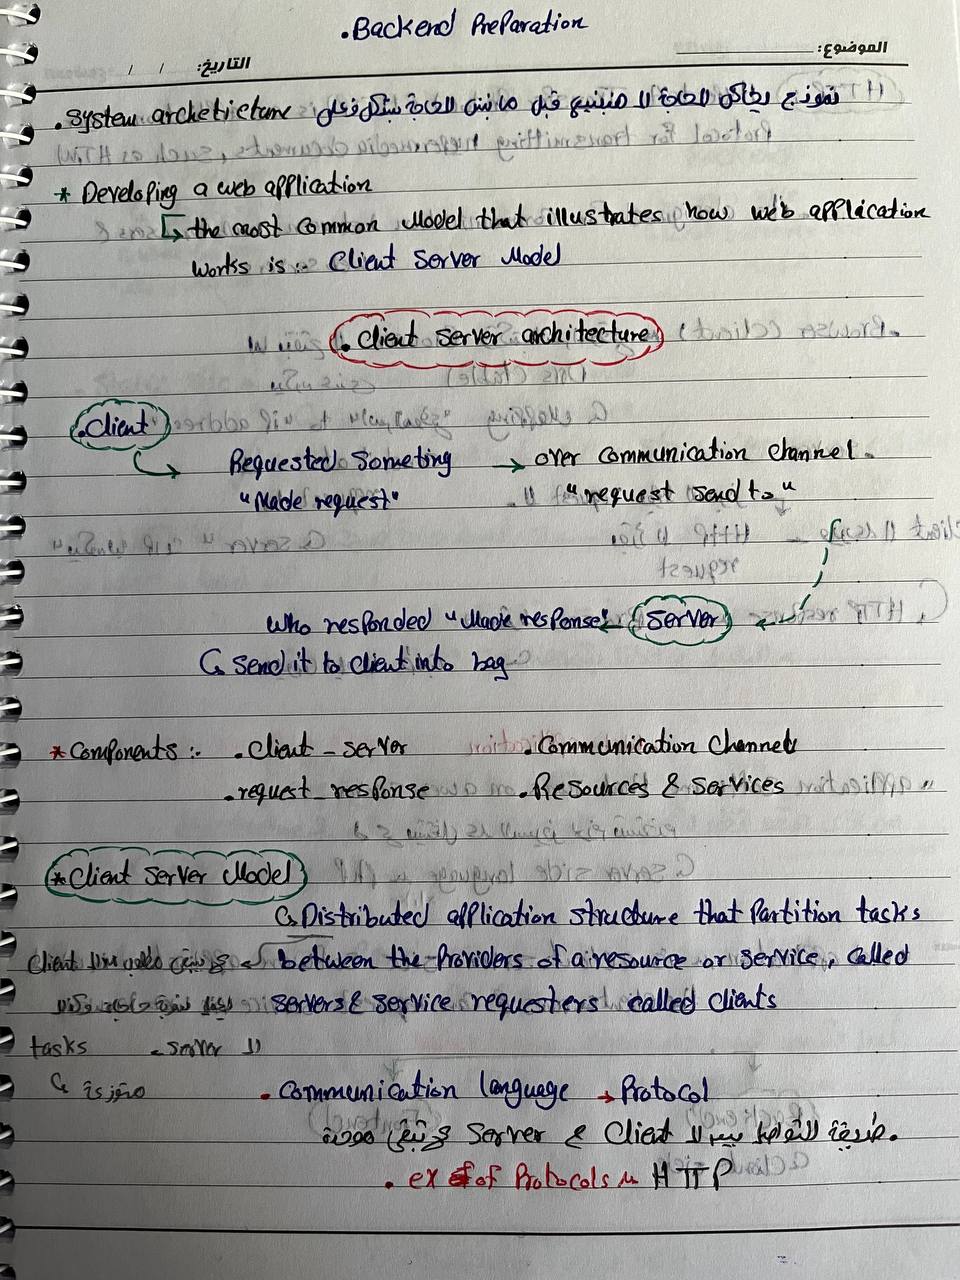 .Backend Preparation
الموضوع:
التاريخ: / /
.System archeticture نموذج يحاكي الحاجة اللي هنبنيها قبل ما نبني الحاجة بشكل فعلي
* Developing a web application
the most common Model that illustrates how web application
works is :- Client Server Model
.Client server architecture
.Client
Requested Someting → over communication channel.
"Made request" "request send to"
who responded "Made response" Server
send it to client into bag
*Components :- .Client - server .Communication Channels
.request - response .Resources & Services
*Client server Model
Distributed application structure that Partition tasks
between the Providers of a resource or service, called
servers & service requesters called clients
Client
tasks - server ال
موزعة
. Communication language → Protocol
.طريقة التواصل بين ال Client و Server تبقى موحدة
. ex of Protocols HTTP